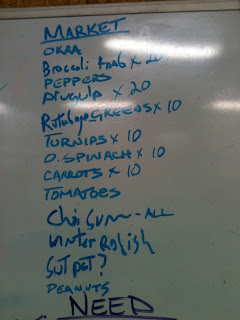 MARKET
OKRA
Broccoli raab x 20
PEPPERS
Arugula x 20
Rutabaga GREENS x 10
TURNIPS x 10
O. SPINACH x 10
CARROTS x 10
TOMATOES
Choi Sum - ALL
Winter Radish
SWT POT?
PEANUTS
NEED